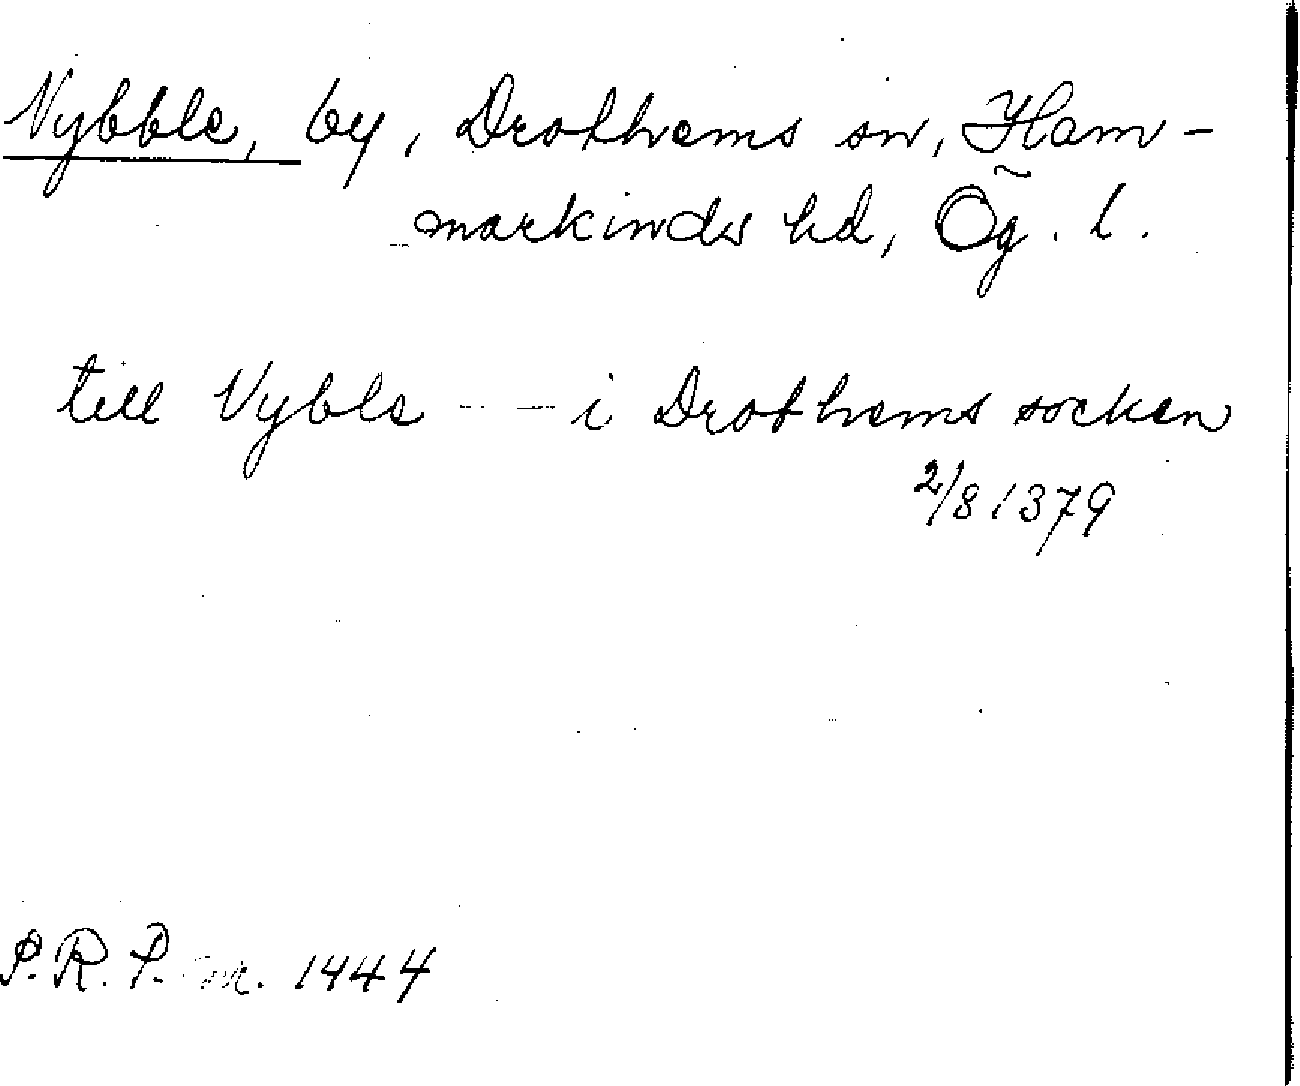 Vybble, by, Drothems sn, Ham-
markinds hd, Ög. l.
till Vyble - - i Drothems socken
2/8 1379
P.R.P. nr. 1444